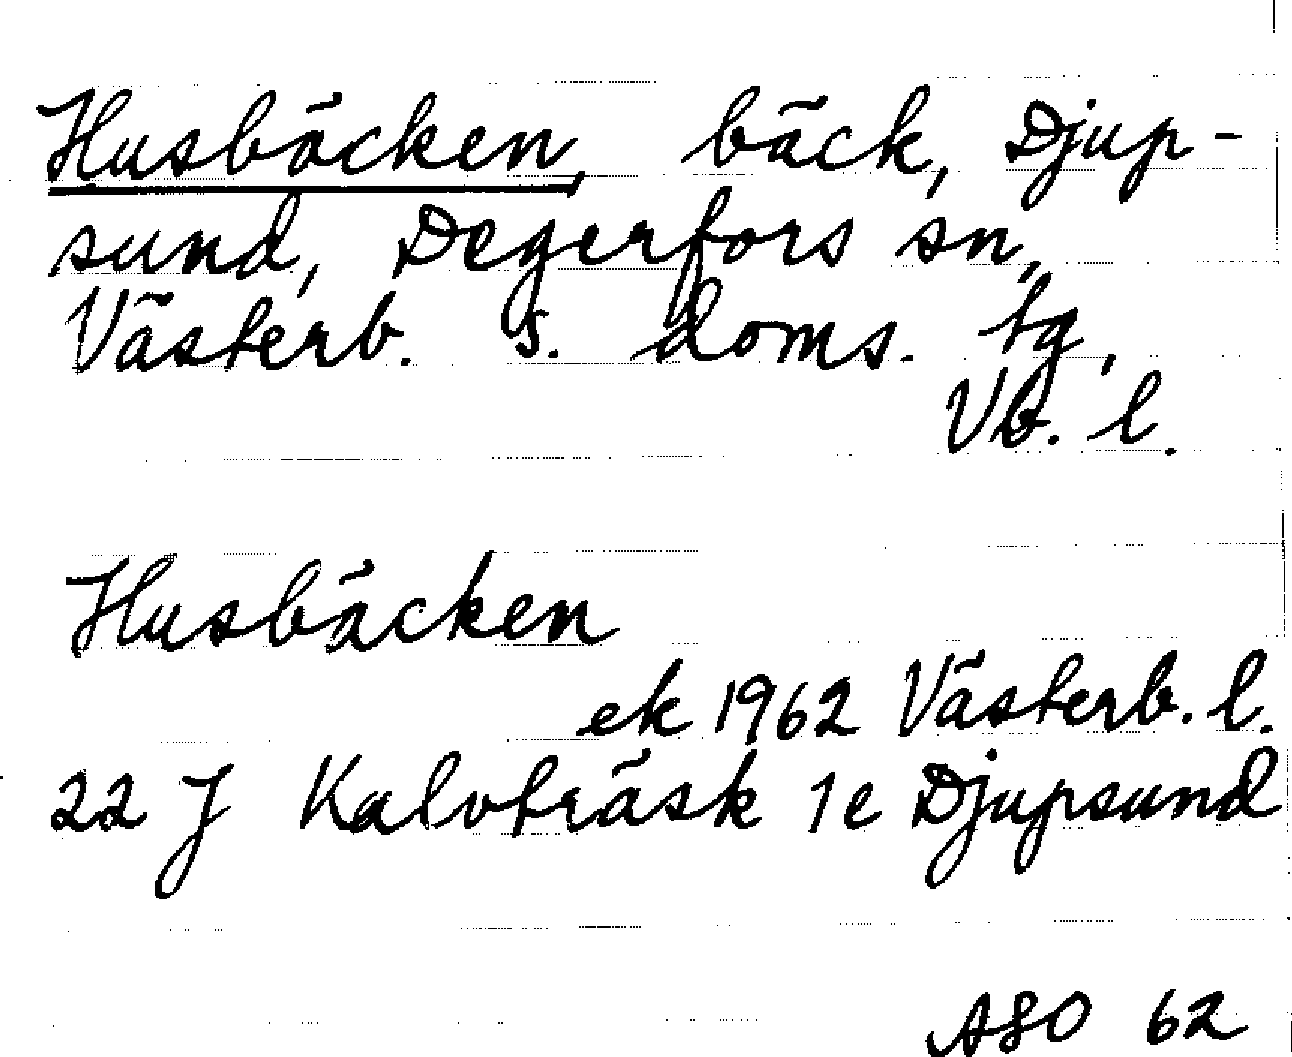 Husbäcken, bäck, Djup-
sund, Degerfors sn,
Västerb. s. doms. tg,
Vb. l.
Husbäcken
ek 1962 Västerb. l.
22 J Kalvträsk 1e Djupsund
ASO 62